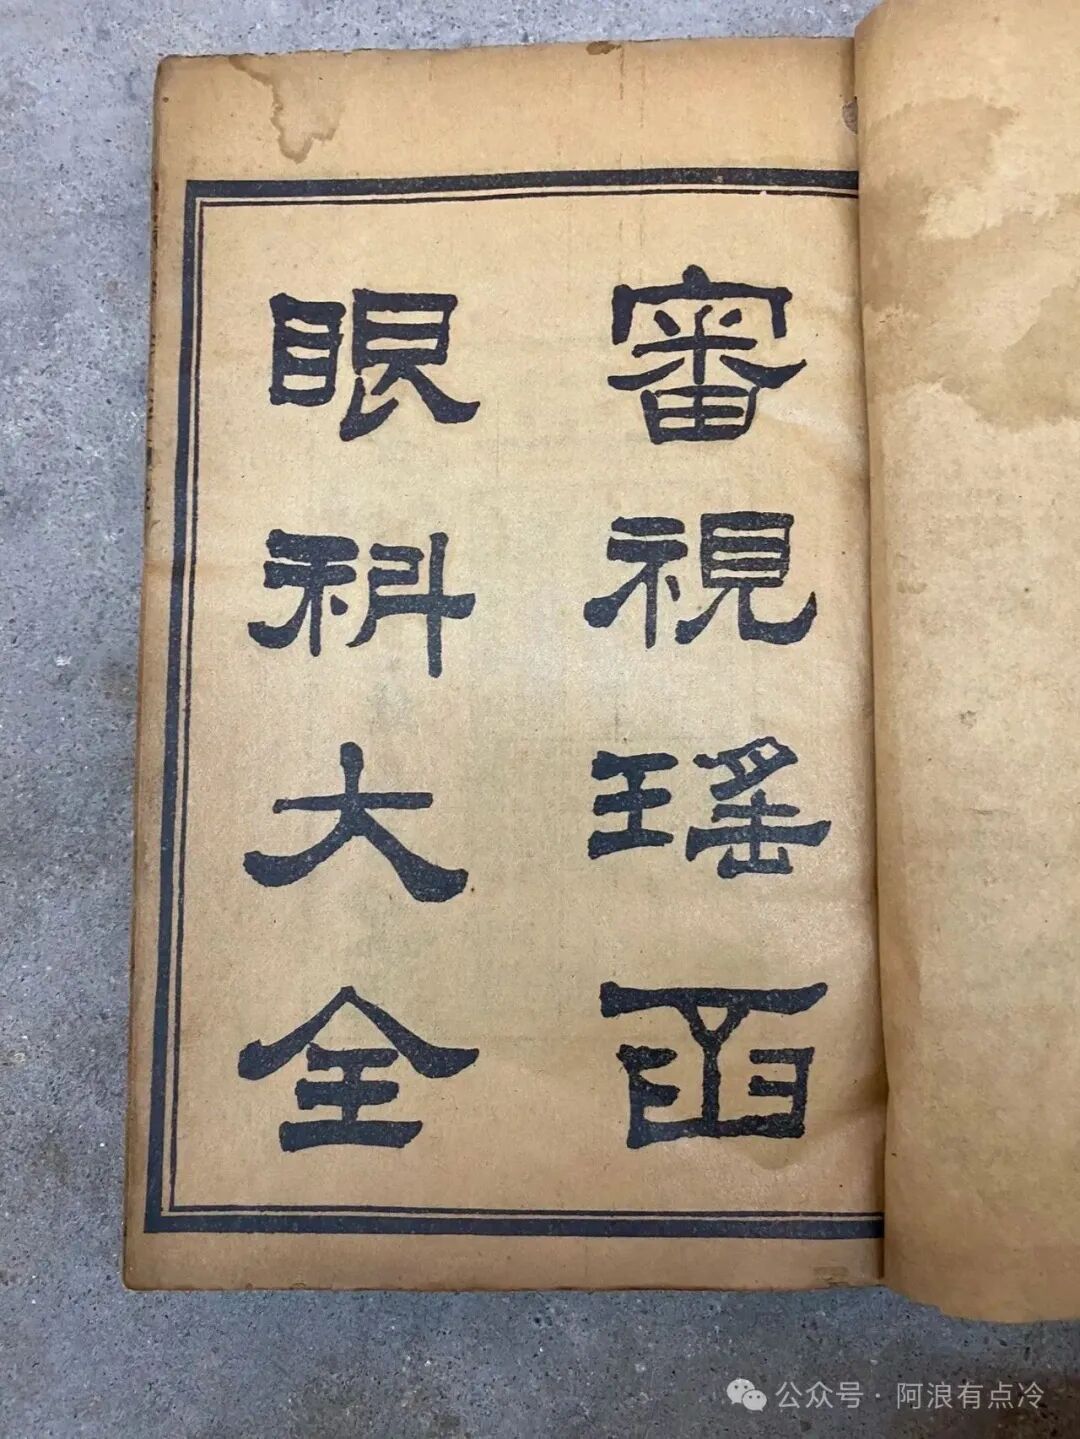 審視瑤函
眼科大全
公众号·阿浪有点冷